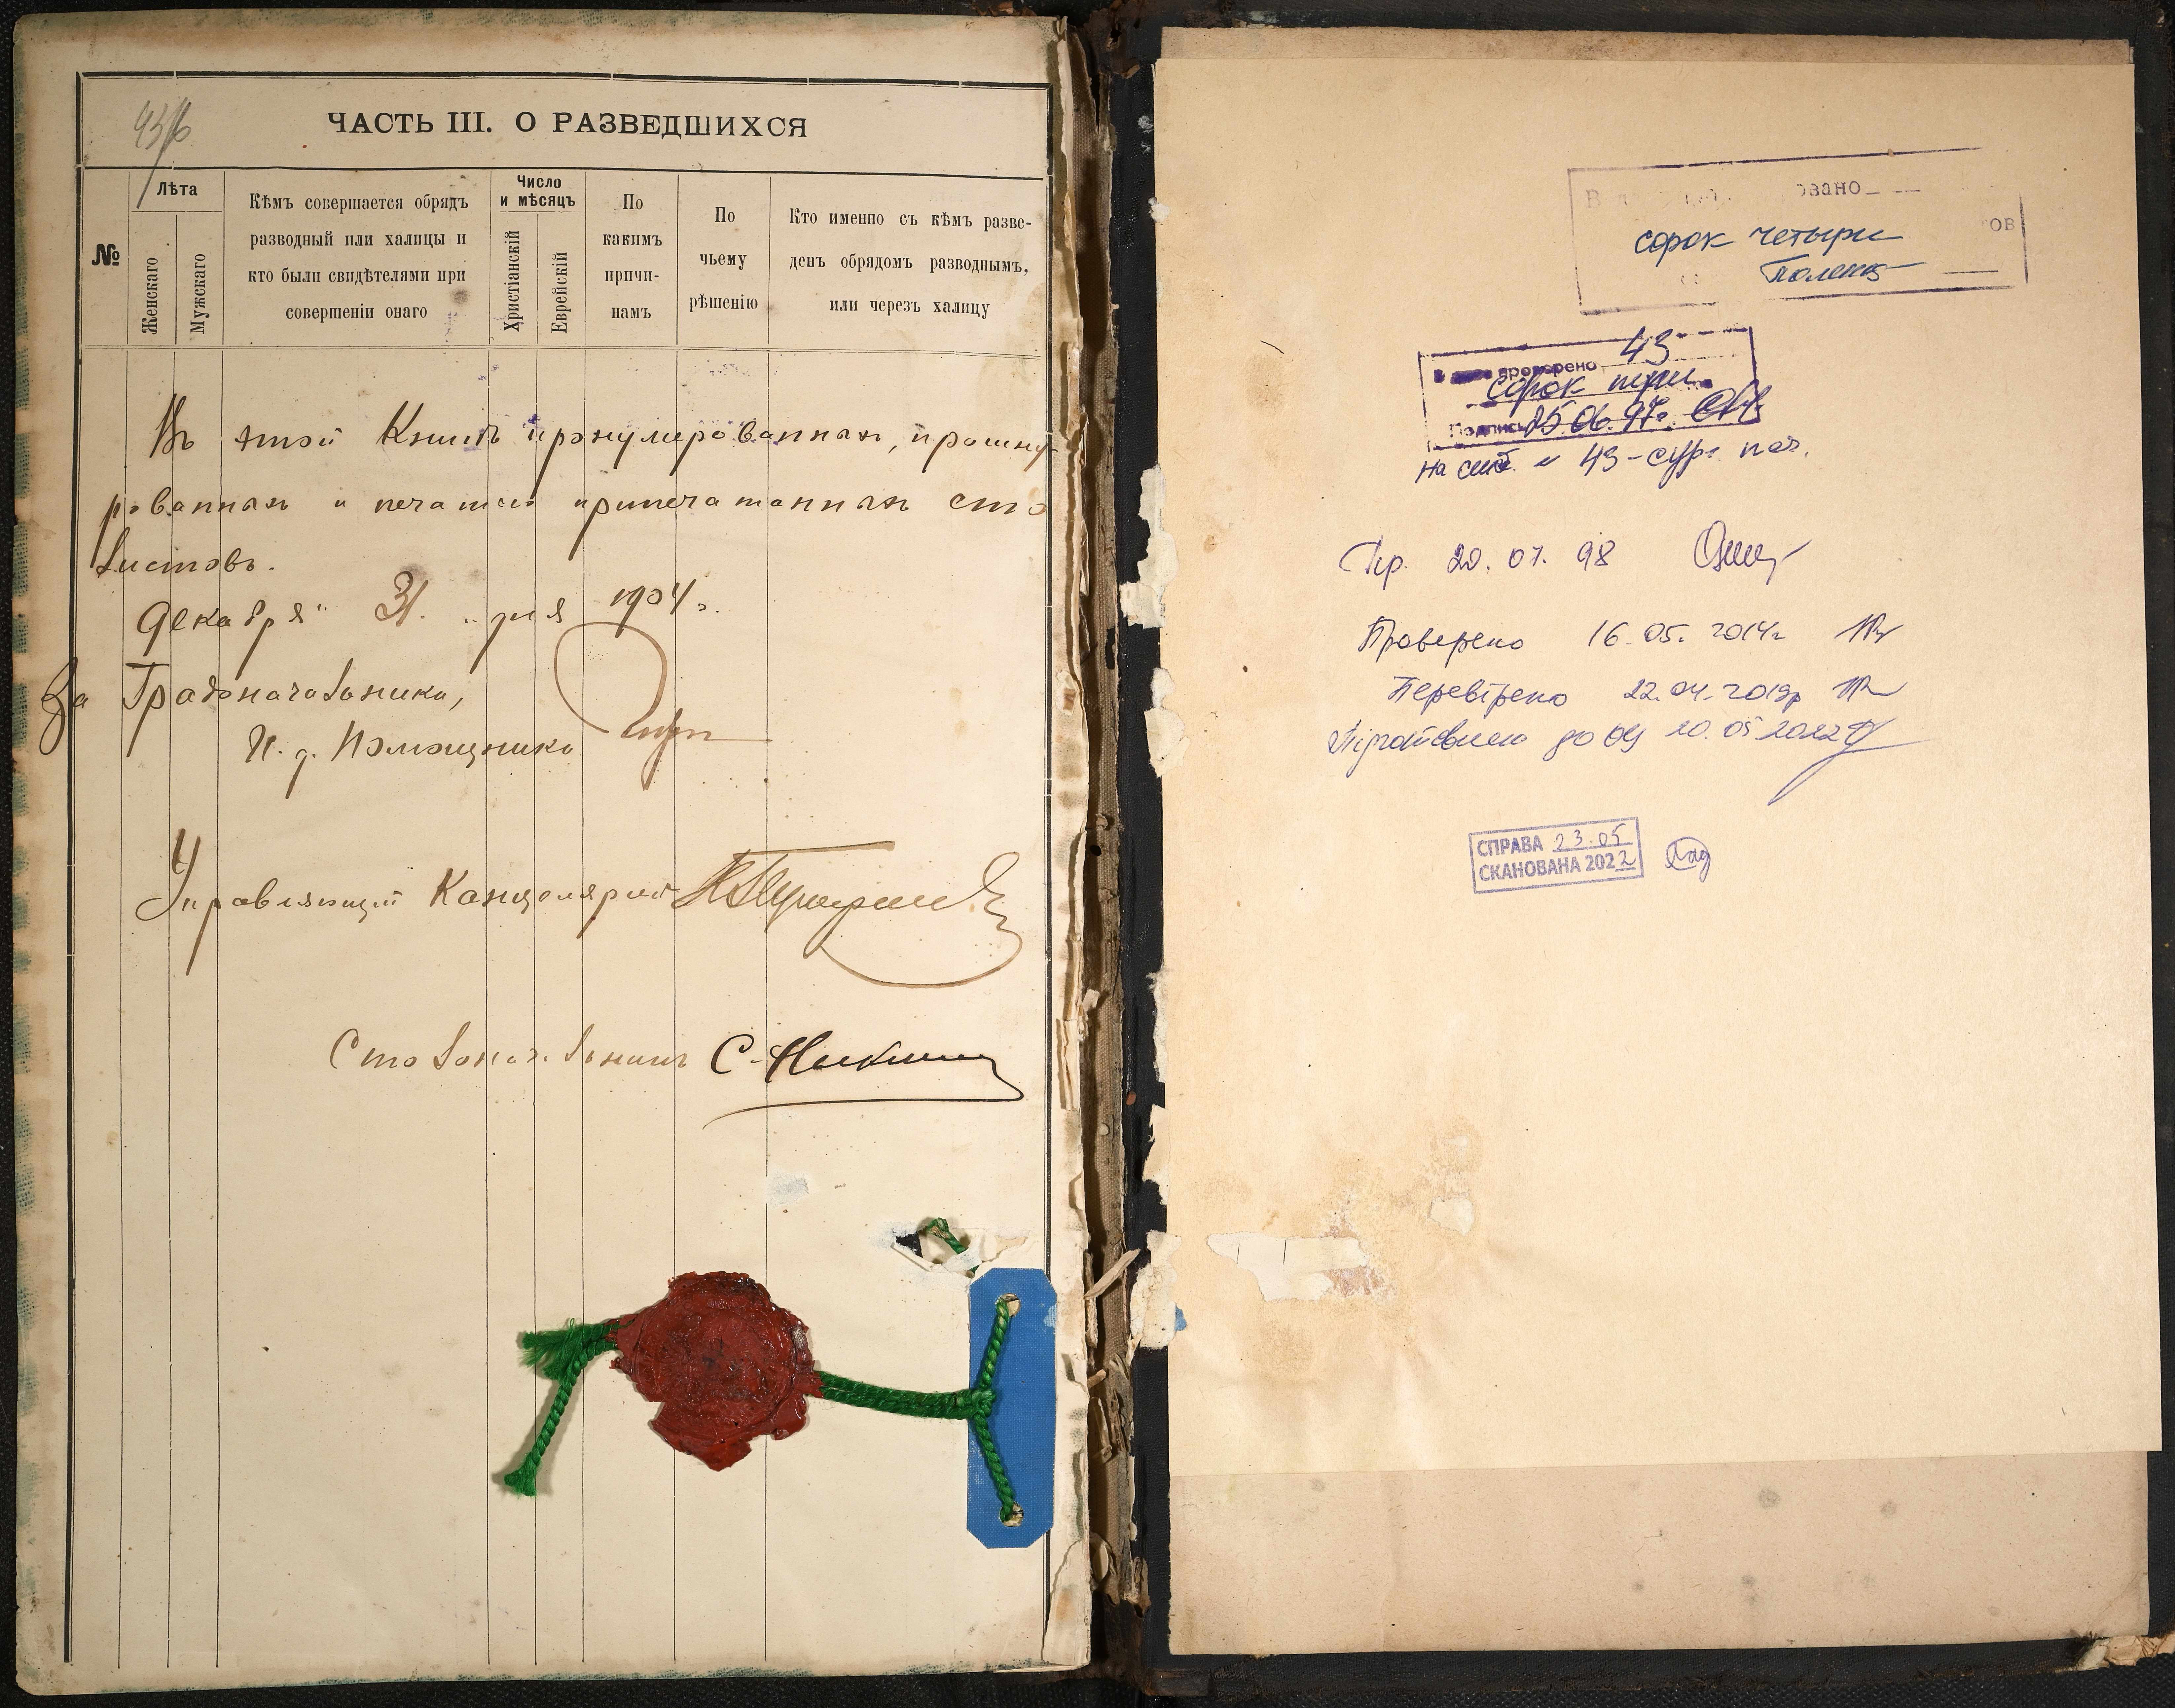 ЧАСТЬ III. О РАЗВЕДШИХСЯ
№
Лѣта
Женскаго
Мужскаго
Кѣмъ совершается обрядъ
разводный или халицы и
кто были свидѣтелями при
совершеніи онаго
Число
и мѣсяцъ
Христіанскій
Еврейскій
По
какимъ
причи-
намъ
По
чьему
рѣшенію
Кто именно съ кѣмъ разве-
денъ обрядомъ разводнымъ,
или черезъ халицу
Въ этой Книгѣ пронумерованныхъ, прошну-
рованныхъ и печатью припечатанныхъ сто
листовъ.
Декабря " 31 " дня 1904 г.
За Градоначальника,
И. д. Помощника
Управляющій Канцеляріей
Столоначальникъ С.
сорок четыре
43
проверено
сорок три
Подпись 25.06.97г.
43 - сург. печ.
Пр. 20.07.98
Проверено 16.05.2014г
Перевірено 22.04.2019р
10.05.2022
СПРАВА 23.05
СКАНОВАНА 2022